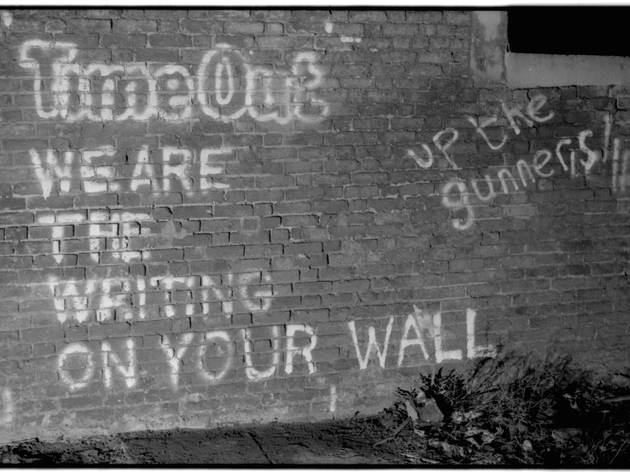 Time Out
WE ARE
THE
WRITING
ON YOUR WALL
up the
gunners!